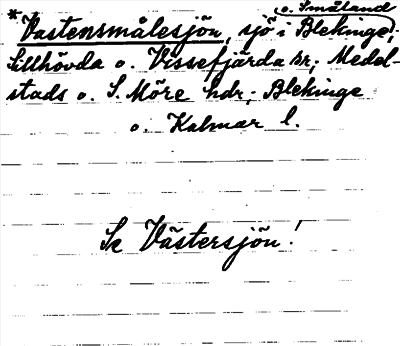 o. Småland
*Vastensmålesjön, sjö i Blekinge;
Tillhövda o. Vissefjärda sr; Medel-
stads o. S. Möre hdr; Blekinge
o. Kalmar l.
Se Västersjön!